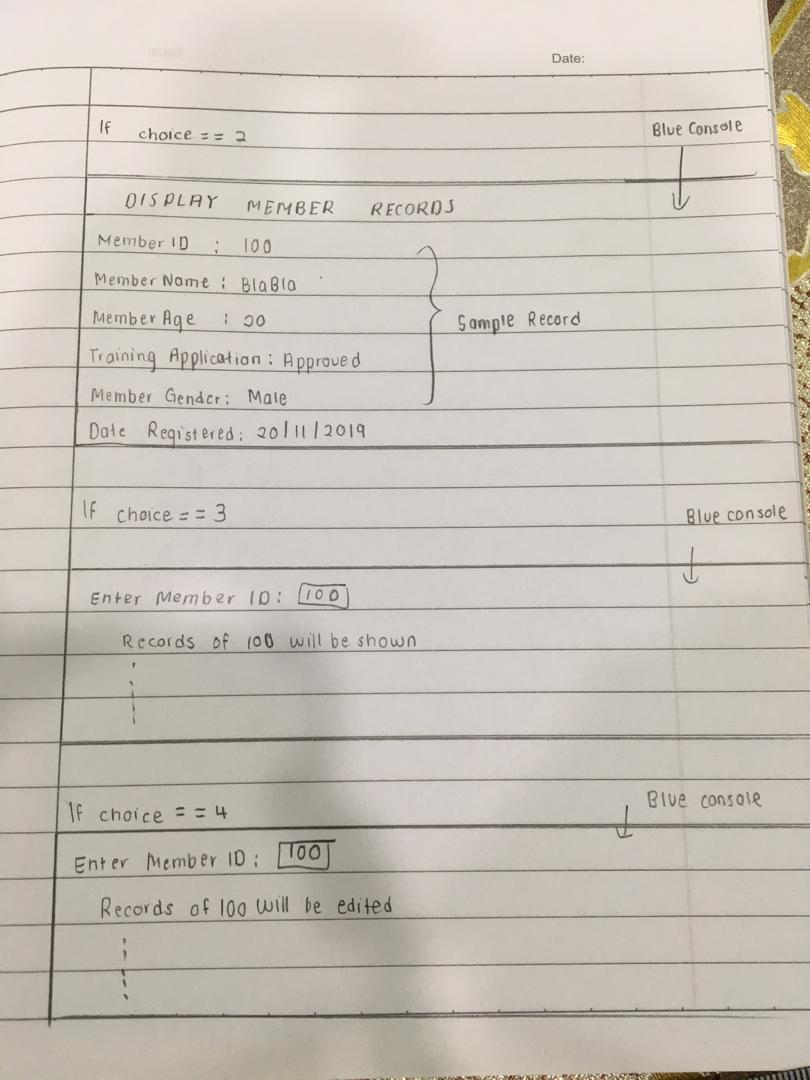 Date:
If choice == 2
Blue Console
DISPLAY MEMBER RECORDS
Member ID : 100
Member Name : BlaBla
Member Age : 20
Sample Record
Training Application : Approved
Member Gender : Male
Date Registered : 20/11/2019
If choice == 3
Blue console
Enter Member ID : 100
Records of 100 will be shown
If choice == 4
Blue console
Enter Member ID : 100
Records of 100 will be edited